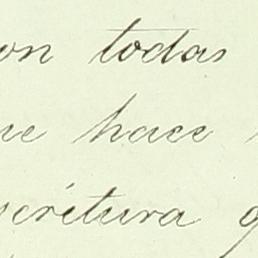 on todas
ue hace
scritura